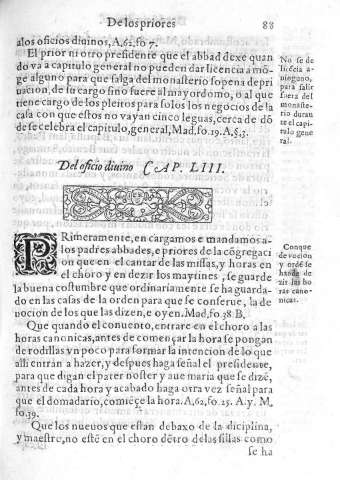 De los priores 88
alos oficios diuinos, A.62. fo 7.
El prior ni otro presidente que el abbad dexe quan
do va a capitulo general no pueden dar licencia a mõ
ge alguno para que salga del monasterio so pena de pri
uacion, de su cargo sino fuere al mayordomo, o al que
tiene cargo de los pleitos para solos los negocios de la
casa con que estos no vayan cinco leguas, cerca de dõ
de se celebra el capitulo, general, Mad. fo. 19. A, §. 3.
No se de
licẽcia a-
ninguno,
para salir
fuera del
monaste-
rio duran
te el capi-
tulo gene
ral.
Del oficio diuino CAP. LIII.
PRimeramente, en cargamos e mandamos a-
los padres abbades, e priores de la cõgregaci
on que en el cantar de las missas, y horas en
el choro y en dezir los maytines, se guarde
la buena costumbre que ordinariamente se ha guarda-
do en las casas de la orden para que se conserue, la de
uocion de los que las dizen, e oyen. Mad. fo 38 B.
Conque
deuocion
y ordẽ se
han de de
zir las ho
ras cano-
nicas.
Que quando el conuento, entrare en el choro a las
horas canonicas, antes de comẽçar la hora se pongan
de rodillas vn poco para formar la intencion de lo que
alli entrãn a hazer, y despues haga señal el presidente,
para que digan el pater noster y aue maria que se dizẽ,
antes de cada hora y acabado haga otra vez señal para
que el domadario, comiẽçe la hora. A.62. fo. 25. A. y. M.
fo. 39.
Que los nueuos que estan debaxo de la diciplina,
y maestro, no estẽ en el choro dẽtro de las sillas como
se ha